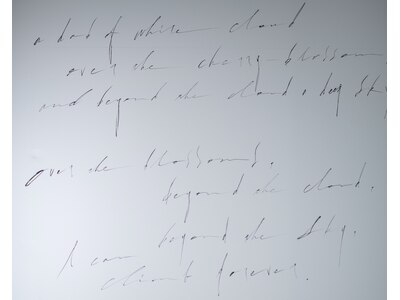 a dab of white cloud
over the cherry-blossom
and beyond the cloud a deep sky
over the blossoms,
beyond the cloud,
beyond the sky.
I can climb forever.